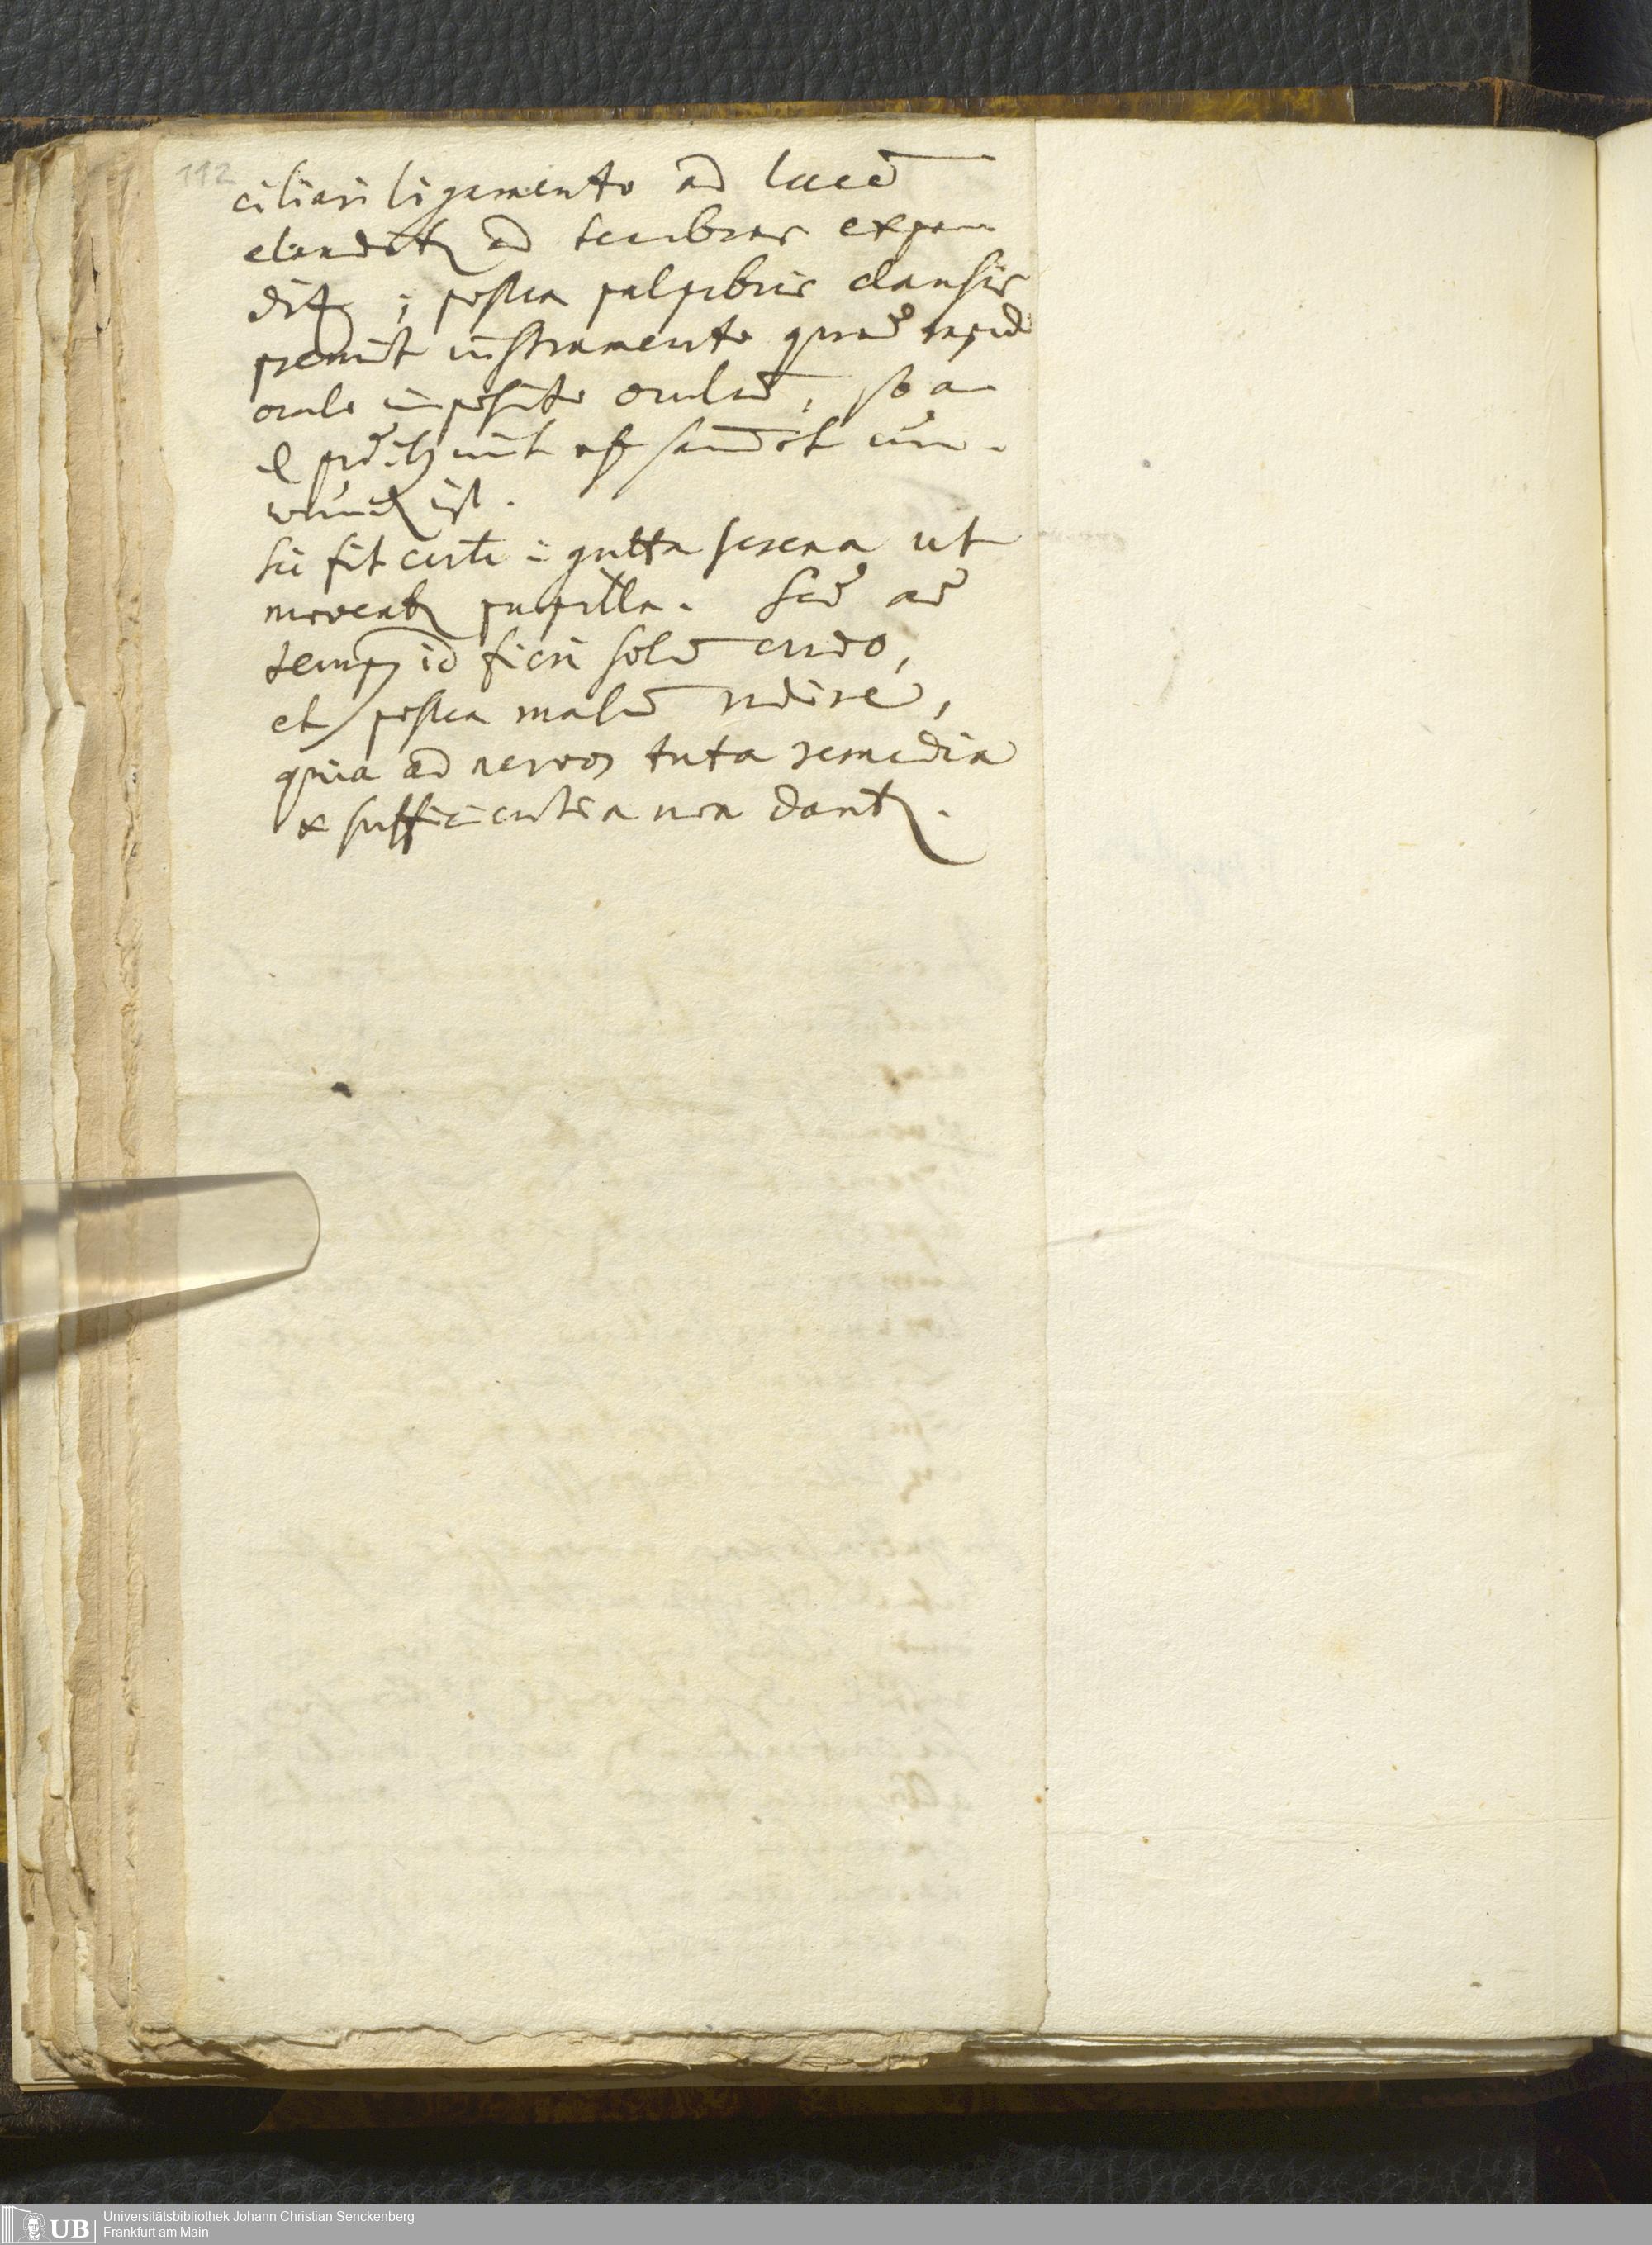 112
ciliari ligamento ad lucē
clauditʒ ad tenebras expan
ditʒ ; postea palpebris clausis
premit instrumento quod̄ rapid
oculo imposito oculum̄, so
nit
ist.
sic fit certe ī gutta serena ut
moveatʒ pupilla. Sed ad
tempʒ id fieri solū credo,
et postea malū redire,
quia ad nervos tuta remedia
& sufficientia non dantʒ.
UB Universitätsbibliothek Johann Christian Senckenberg
Frankfurt am Main